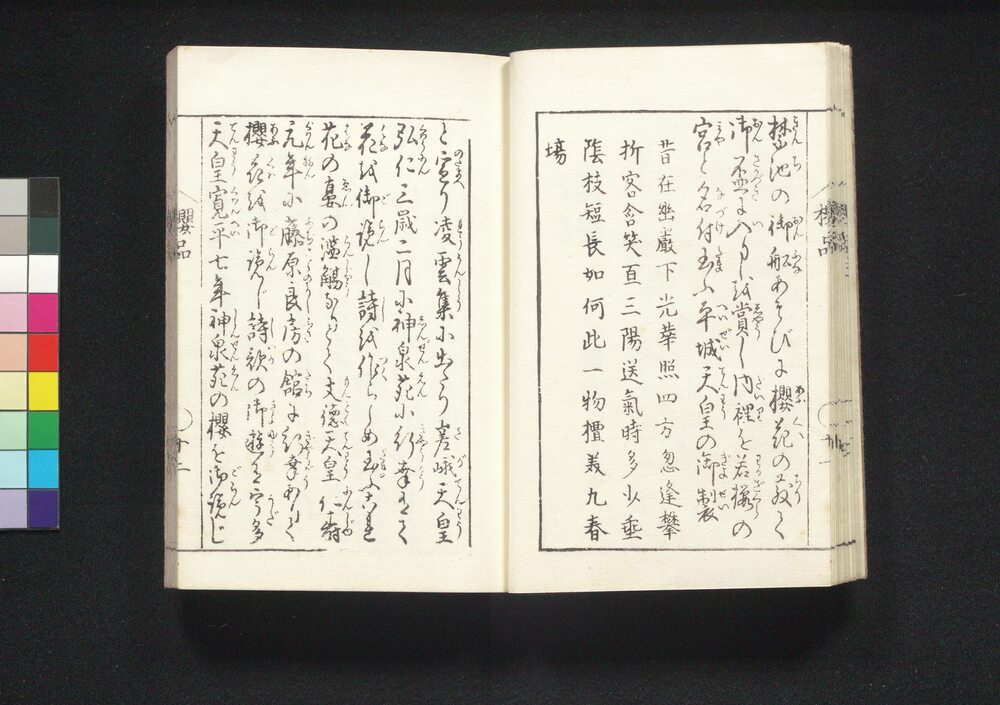 禁池の御舩あそびに櫻花の散て
御盃に入しを賞し内裡を若櫻の
宮と名付玉ふ平城天皇の御製
昔在幽巖下光華照四方忽逢攀
折客含笑亘三陽送氣時多少垂
陰枝短長如何此一物擅美九春
場
櫻品
と宣り凌雲集に出たり嵯峨天皇
弘仁三歳二月に神泉苑に行幸有て
花を御覧し詩を作らしめ玉ふ是
花の宴の濫觴なりとぞ文徳天皇仁壽
元年に藤原良房の館に行幸ありて
櫻花を御覧じ詩歌の御遊有宇多
天皇寛平七年神泉苑の櫻を御覧じ
櫻品